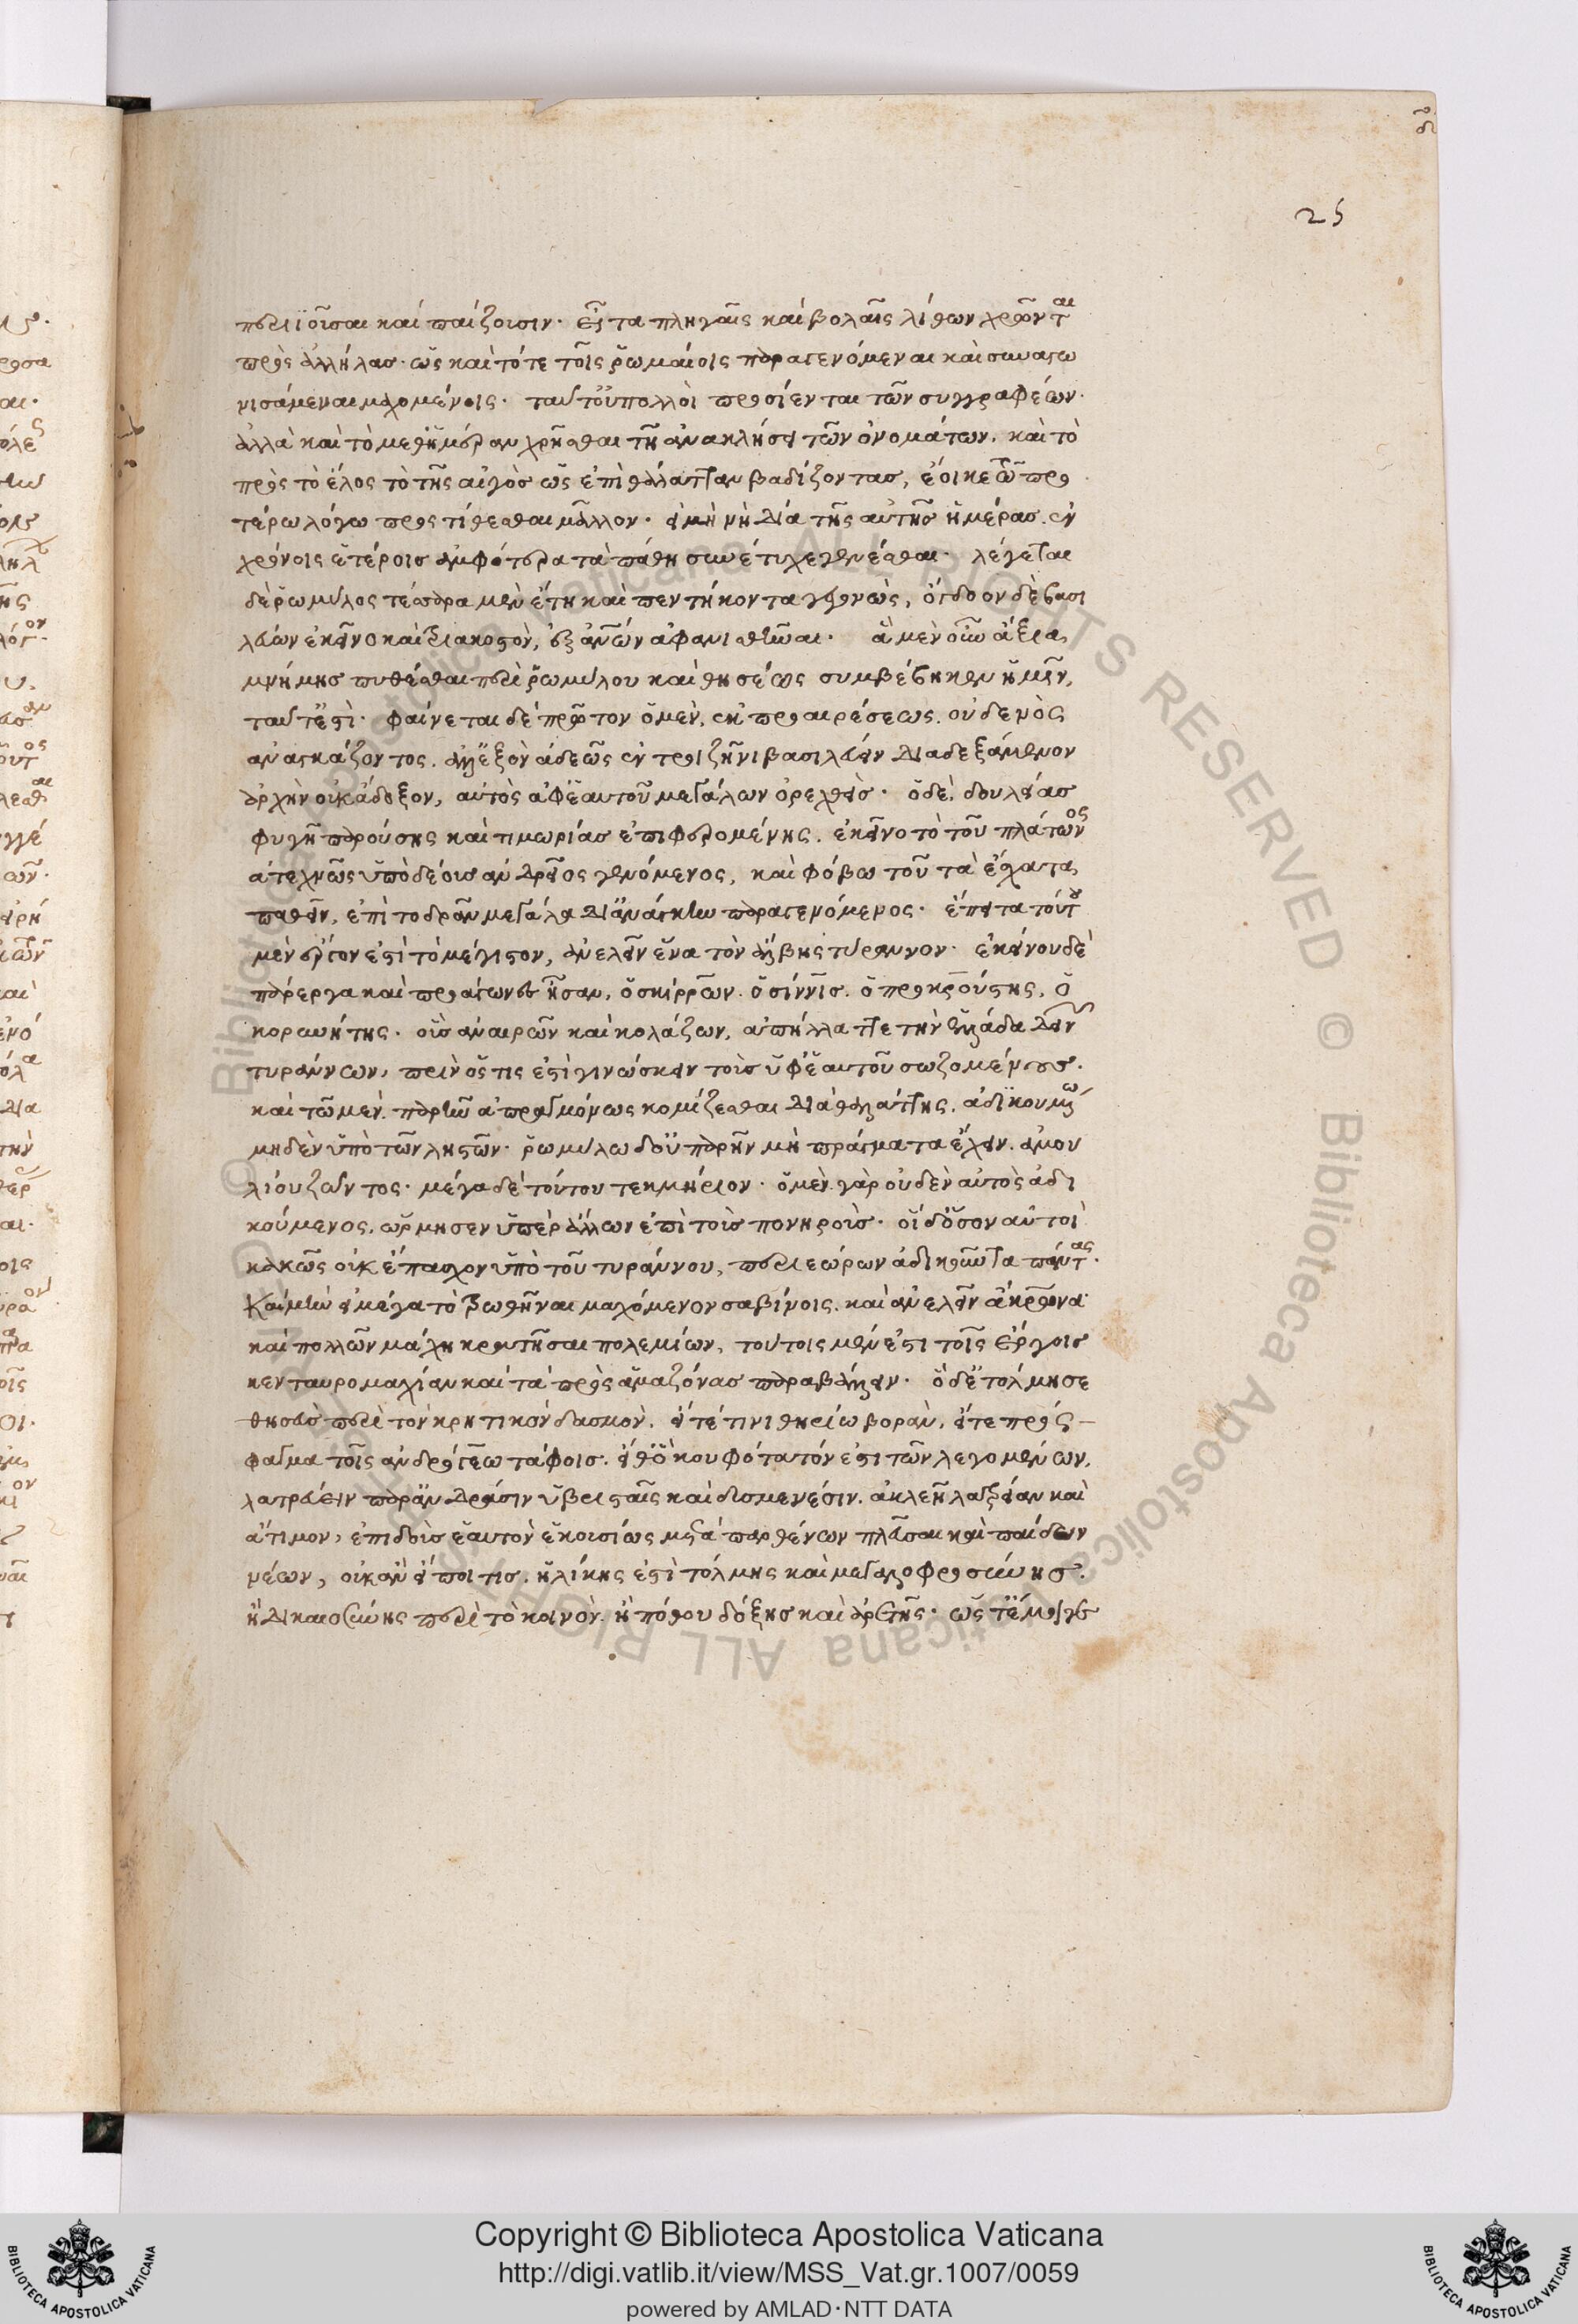 δ
25
περιϊοῦσαι καὶ παίζουσιν· εἶτα πληγαῖς καὶ βολαῖς λίθων χρῶνται
πρὸς ἀλλήλας· ὡς καὶ τότε τοῖς ῥωμαίοις παραγενόμεναι καὶ συναγω
νισάμεναι μαχομένοις· ταῦτ' οὖν πολλοὶ προσίενται τῶν συγγραφέων·
ἀλλὰ καὶ τὸ μεθ' ἡμέραν χρῆσθαι τῇ ἀνακλήσει τῶν ὀνομάτων, καὶ τὸ
πρὸς τὸ ἕλος τὸ τῆς αἰγὸς ὡς ἐπὶ θάλατταν βαδίζοντας, ἔοικε τῷ προ
τέρω λόγω προστίθεσθαι μᾶλλον· εἰ μὴ νὴ δία τῆς αὐτῆς ἡμέρας ἐν
χρόνοις ἑτέροις ἀμφότερα τὰ πάθη συνέτυχε γενέσθαι· λέγεται
δὲ ῥωμύλος τέσσαρα μὲν ἔτη καὶ πεντήκοντα γεγονὼς, ὄγδοον δὲ βασι
λεύων ἐκεῖνο καὶ τριακοστὸν, ἐξ ἀνθρώπων ἀφανισθῆναι· ἃ μὲν οὖν ἄξια
μνήμης πυθέσθαι περὶ ῥωμύλου καὶ θησέως συμβέβηκεν ἡμῖν,
ταῦτ' ἐστὶ· φαίνεται δὲ πρῶτον ὁ μὲν, ἐκ προαιρέσεως οὐδενὸς
ἀναγκάζοντος, ἀλλ' ἐξὸν ἀδεῶς ἐν τροιζῆνι βασιλεύειν διαδεξάμενον
ἀρχὴν οὐκ ἄδοξον, αὐτὸς ἀφ' ἑαυτοῦ μεγάλων ὀρεχθεὶς· ὁ δὲ, δουλείας
φυγῇ παρούσης καὶ τιμωρίας ἐπιφερομένης, ἐκεῖνο τὸ τοῦ πλάτωνος
ἀτεχνῶς ὑπὸ δέους ἀνδρεῖος γενόμενος, καὶ φόβω τοῦ τὰ ἔσχατα
παθεῖν, ἐπὶ τὸ δρᾶν μεγάλα δι' ἀνάγκην παραγενόμενος· ἔπειτα τούτου
μὲν ἔργον ἐστὶ τὸ μέγιστον, ἀνελεῖν ἕνα τὸν ἄλβης τύραννον· ἐκείνου δὲ
πάρεργα καὶ προάγωνες ἦσαν, ὁ σκίρρων· ὁ σίννις· ὁ προκρούστης, ὁ
κορυνήτης· οὓς ἀναιρῶν καὶ κολάζων, ἀπήλλαττε τὴν ἑλλάδα δεινῶν
τυράννων, πρὶν ὅστις ἐστὶ γινώσκειν τοὺς ὑφ' ἑαυτοῦ σωζομένους·
καὶ τῷ μὲν παρῆν ἀπραγμόνως κομίζεσθαι διὰ θαλάττης, ἀδικουμένω
μηδὲν ὑπὸ τῶν ληστῶν· ῥωμύλω δ' οὐ παρῆν μὴ πράγματα ἔχειν, ἀμου
λίου ζῶντος· μέγα δὲ τούτου τεκμήριον· ὁ μὲν γὰρ οὐδὲν αὐτὸς ἀδι
κούμενος, ὥρμησεν ὑπὲρ ἄλλων ἐπὶ τοὺς πονηροὺς· οἱ δ' ὅσον αὐτοὶ
κακῶς οὐκ ἔπασχον ὑπὸ τοῦ τυράννου, περιεώρων ἀδικοῦντα πάντας·
Καὶ μὴν εἰ μέγα τὸ τρωθῆναι μαχόμενον σαβίνοις, καὶ ἀνελεῖν ἄκρωνα
καὶ πολλῶν μάχη κρατῆσαι πολεμίων, τούτοις μὲν ἔστι τοῖς ἔργοις
κενταυρομαχίαν καὶ τὰ πρὸς ἀμαζόνας παραβάλλειν· ὃ δ' ἐτόλμησε
θησεὺς περὶ τὸν κρητικὸν δασμὸν, εἴτέ τινι θηρίω βορὰν, εἴτε πρόσ-
φαγμα τοῖς ἀνδρόγεω τάφοις· εἴθ' ὃ κουφότατόν ἐστι τῶν λεγομένων,
λατρεύειν παρ' ἀνδράσιν ὑβρισταῖς καὶ δυσμενέσιν, ἀκλεῆ λατρείαν καὶ
ἄτιμον, ἐπιδοὺς ἑαυτὸν ἑκουσίως μετὰ παρθένων πλεῦσαι καὶ παίδων
νέων, οὐκ ἂν εἴποι τις, ἡλίκης ἐστὶ τόλμης καὶ μεγαλοφροσύνης·
ἢ δικαιοσύνης περὶ τὸ κοινὸν· ἢ πόθου δόξης καὶ ἀρετῆς· ὥστ' ἔμοιγε
Copyright © Biblioteca Apostolica Vaticana
http://digi.vatlib.it/view/MSS_Vat.gr.1007/0059
powered by AMLAD·NTT DATA
BIBLIOTECA APOSTOLICA VATICANA
BIBLIOTECA APOSTOLICA VATICANA